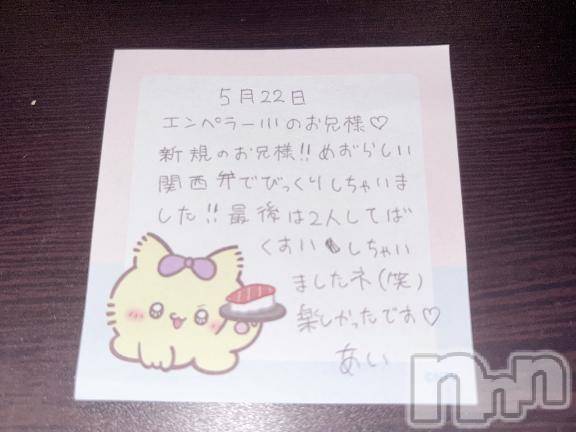 5月22日
エンペラー川のお兄様♡
新規のお兄様!!めずらしい
関西弁でびっくりしちゃいま
した!!最後は2人してば
くすいしちゃい
ましたネ(笑)
楽しかったです♡
あい
nnn